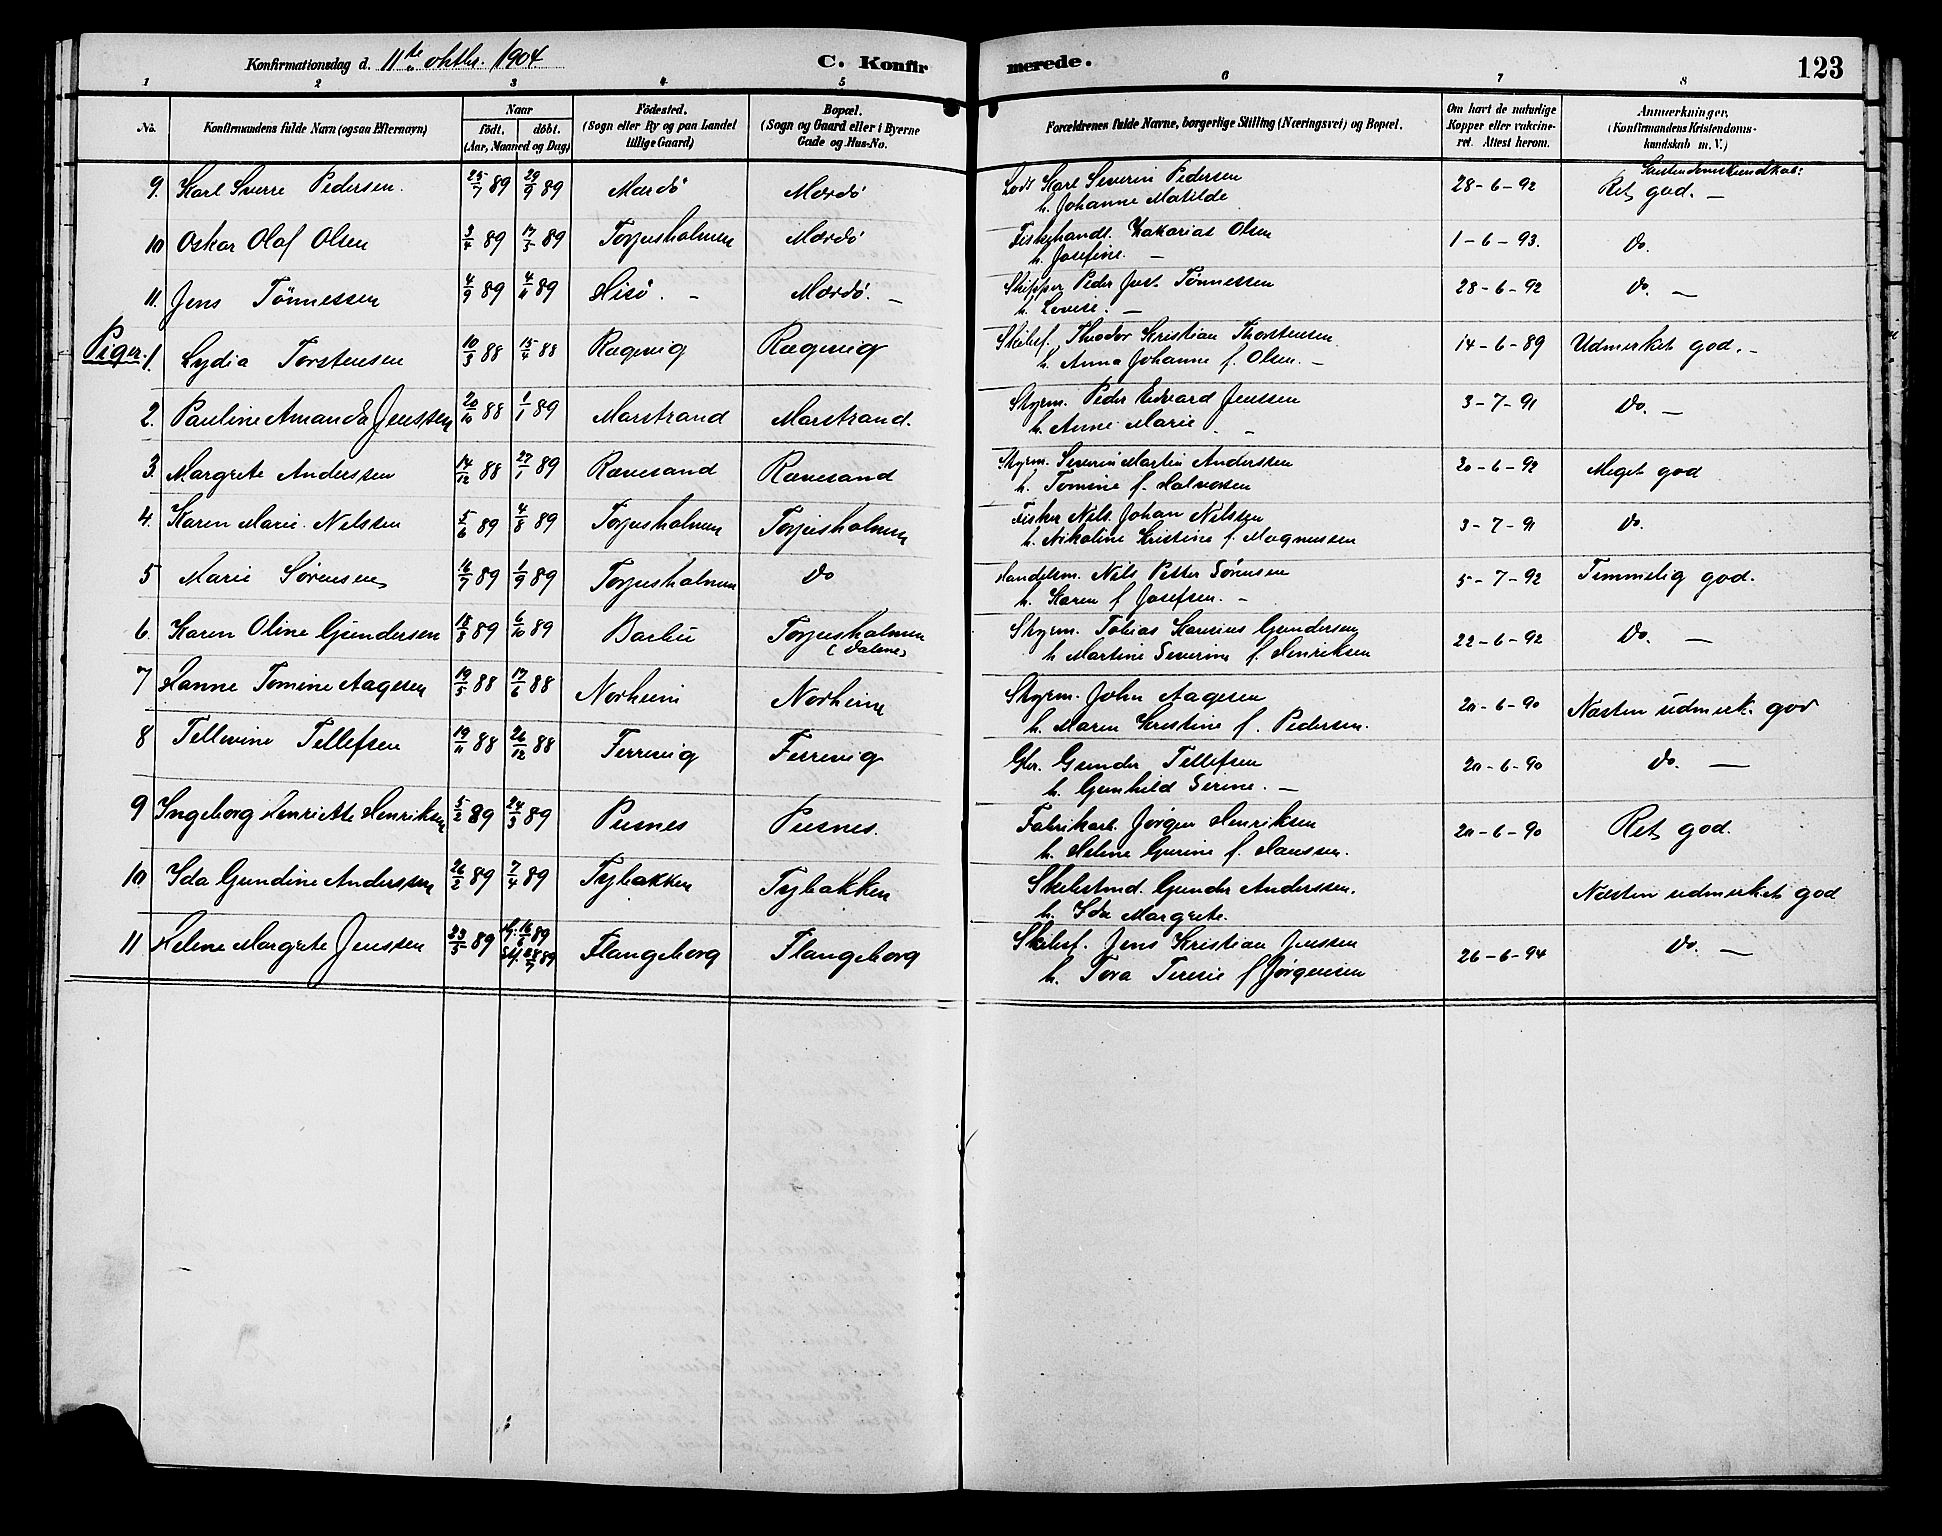 Konfirmationsdag d. 11te oktbr. 1904
C. Konfirmerede.
123
1 2 3 4 5 6 7 8
No. Konfirmandens fulde Navn (ogsaa Efternavn) Naar födt. döbt. (Aar, Maaned og Dag) Födested. (Sogn eller By og paa Landet tillige Gaard) Bopæl. (Sogn og Gaard eller i Byerne Gade og Hus-No. Forældrenes fulde Navne, borgerlige Stilling (Næringsvei) og Bopæl. Om havt de naturlige Kopper eller vakcineret. Attest herom. Anmærkninger. (Konfirmandens Kristendomskundskab m. V.)
Kristendomskundskab:
9. Karl Sverre Pedersen. 25/7 89 29/9 89 Mærdö Mærdö Lods Karl Severin Pedersen 28-6-92 Ret god. —
h. Johanne Matilde
10 Oskar Olaf Olsen 3/4 89 17/5 89 Torjusholmen Mærdö Fiskehandl. Zakarias Olsen 1-6-93. do.
h. Josefine. —
11. Jens Tönnessen 4/9 89 4/11 89 Hisö. — Mærdö. — Skipper Peder Just Tönnessen 28-6-92 do. —
h. Lovise. —
Piger. 1. Lydia Torstensen 10/3 88 15/4 88 Rægevig Rægevig Skibsf. Theodor Kristian Thorstensen 14-6-89 Udmerket god. —
h. Anna Johanne f. Olsen. —
2. Pauline Amanda Jenssen 20/10 88 1/1 89 Marstrand Marstrand. Styrm. Peder Edvard Jenssen 3-7-91 do. —
h. Anne Marie —
3. Margrete Anderssen 14/12 88 27/1 89 Rævesand Rævesand Styrm. Severin Martin Anderssen 20-6-92 Meget god
h. Tomine f. Halvorsen
4. Karen Marie Nilssen 5/6 89 4/8 89 Torjusholmen Torjusholmen Fisker Nils Johan Nilssen 3-7-91 do.
h. Nikoline Kristine f. Magnussen
5 Marie Sørensen 16/7 89 1/9 89 Torjusholmen do Handelsm. Nils Petter Sörensen 5-7-92 Temmelig god.
h. Karen f Josefsen. —
6. Karen Oline Gundersen 18/8 89 6/10 89 Barbu Torjusholmen Styrm. Tobias Gundersen 22-6-92 do. —
(Dalene) h Martine Severine f. Henriksen
7 Hanne Tomine Aagesen 19/5 88 17/6 88 Norheim Norheim Styrm. John Aagesen 20-6-90 Næsten udmerk. god
h. Maren Kristine f. Pedersen.
8 Tellevine Tellefsen 19/11 88 26/12 88 Ferrevig Ferrevig Gbr. Gunder Tellefsen 20-6-90 do. —
h. Gunhild Serine. —
9 Ingeborg Henriette Henriksen 5/2 89 24/3 89 Pusnes Pusnes. Fabrikarb. Jörgen Henriksen 20-6-90 Ret god.
h. Helene Gurine f. Hanssen.
10 Ida Gundine Anderssen 26/2 89 7/4 89 Tybakken Tybakken Skibstmd. Gunder Anderssen. Næsten udmerket god
h. Ida Margrete.
11 Helene Margrete Jenssen 23/5 89 16/6 89 Flangeborg Flangeborg Skibsf. Jens Kristian Jenssen 26-6-94 do. —
h. Tora Teresie f Jørgensen